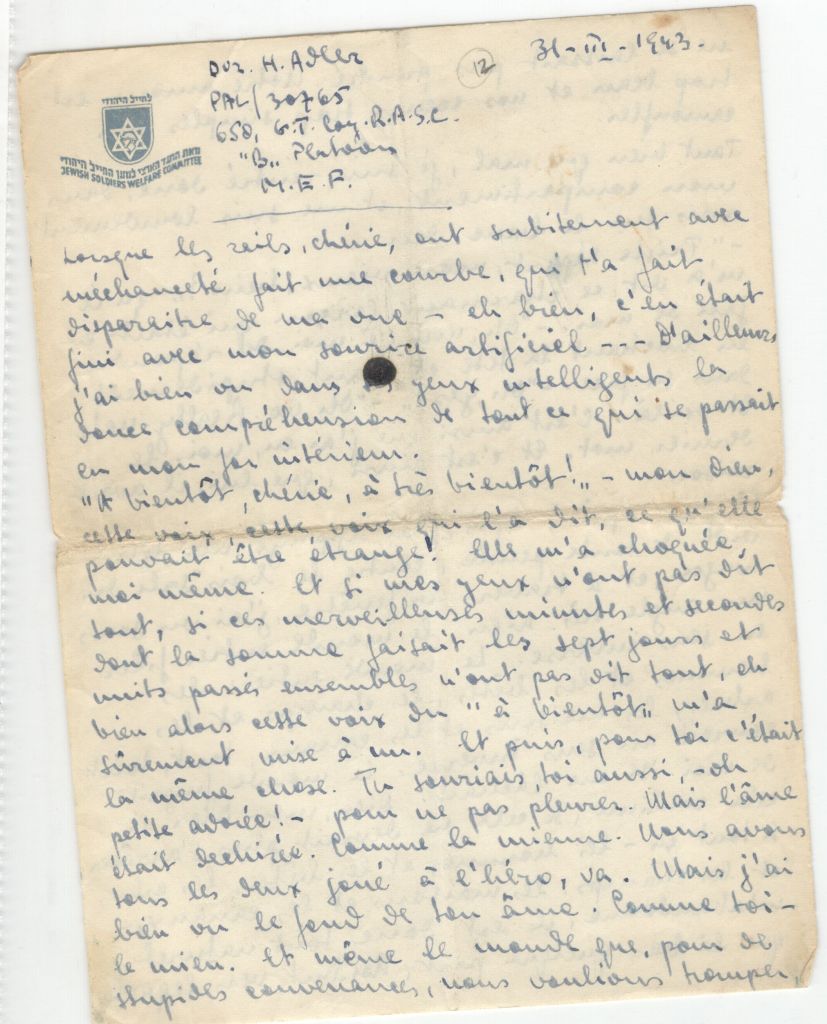 Dvr. H. Adler
PAL/30765
650, G.T. Coy. R.A.S.C.
"B" Platoon
M.E.F.
12
31-III-1943.
לחייל היהודי
מאת הועד הארצי למען החייל היהודי
JEWISH SOLDIERS WELFARE COMMITTEE
Lorsque les rails, chérie, ont subitement avec
méchanceté fait une courbe, qui t'a fait
disparaitre de ma vue – eh bien, c'en était
fini avec mon sourire artificiel --- D'ailleurs,
j'ai bien vu dans yeux intelligents la
douce compréhension de tout ce qui se passait
en mon for intérieur.
"A bientôt, chérie, à très bientôt!" – mon Dieu,
cette voix, cette voix qui l'a dit, ce qu'elle
pouvait être étrange! Elle m'a choquée,
moi même. Et si mes yeux n'ont pas dit
tout, si ces merveilleuses minutes et secondes
dont la somme faisait les sept jours et
nuits passés ensembles n'ont pas dit tout, eh
bien alors cette voix du "à bientôt" m'a
sûrement mise à nu. Et puis, pour toi c'était
la même chose. Tu souriais, toi aussi, – oh
petite adorée! – pour ne pas pleurer. Mais l'âme
était dechirée. Comme la mienne. Nous avons
tous les deux joué à l'héro, va. Mais j'ai
bien vu le fond de ton âme. Comme toi –
le mien. Et même le monde que, pour de
stupides convenances, nous voulions tromper,